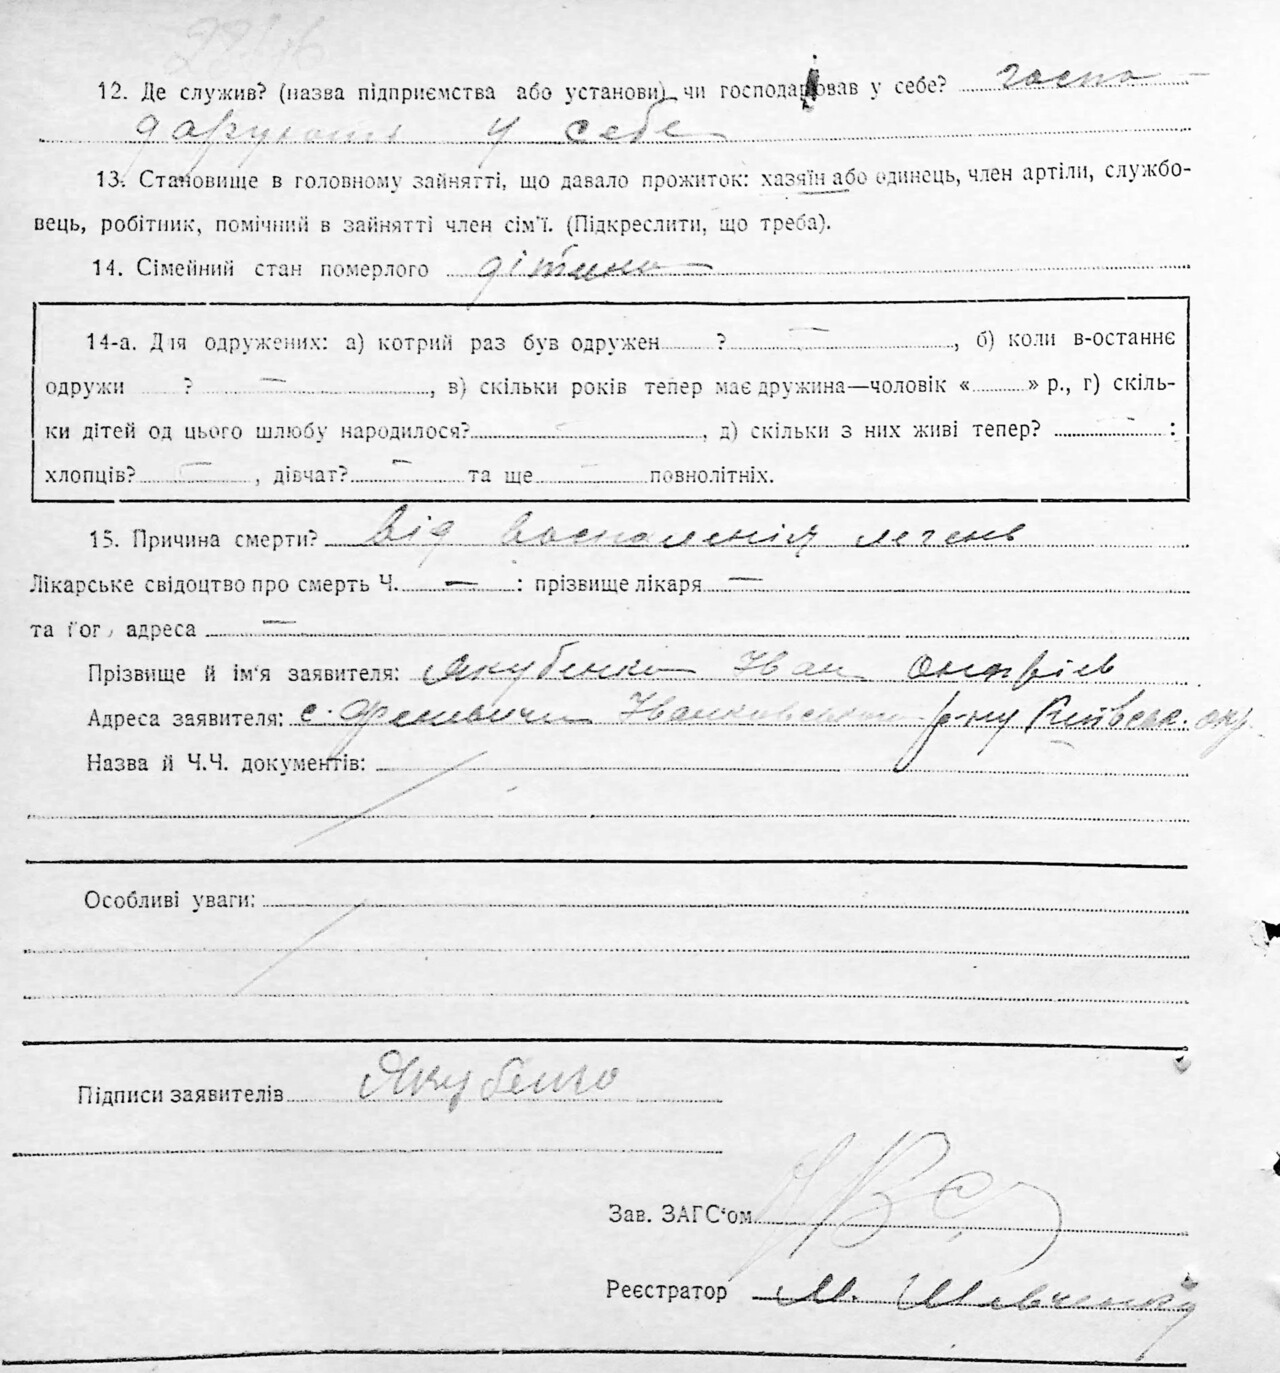 12. Де служив? (назва підприємства або установи) чи господарював у себе? госпо-
дарував у себе
13. Становище в головному зайнятті, що давало прожиток: хазяїн або одинець, член артіли, службо-
вець, робітник, помічний в зайнятті член сім'ї. (Підкреслити, що треба).
14. Сімейний стан померлого дітина —
14-а. Для одружених: а) котрий раз був одружен ? —, б) коли в-останнє
одружи ? —, в) скільки років тепер має дружина—чоловік « » р., г) скіль-
ки дітей од цього шлюбу народилося? —, д) скільки з них живі тепер? — :
хлопців? —, дівчат? — та ще — повнолітніх.
15. Причина смерти? від воспаленія легень
Лікарське свідоцтво про смерть Ч. — : прізвище лікаря —
та його адреса —
Прізвище й ім'я заявителя: Якубенко Іван
Адреса заявителя: с. Іванковського р-ну Київськ. окр.
Назва й Ч.Ч. документів:
Особливі уваги:
Підписи заявителів Якубенко
Зав. ЗАГС'ом
Реєстратор М. Шевченко